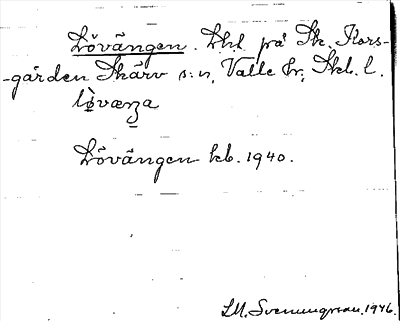 Lövängen. Lht. på St. Kors-
-gården Skärv s:n, Valle hr, Skb. l.
lò̤væŋa
Lövängen kb. 1940.
L.M. Svenungsson. 1946.